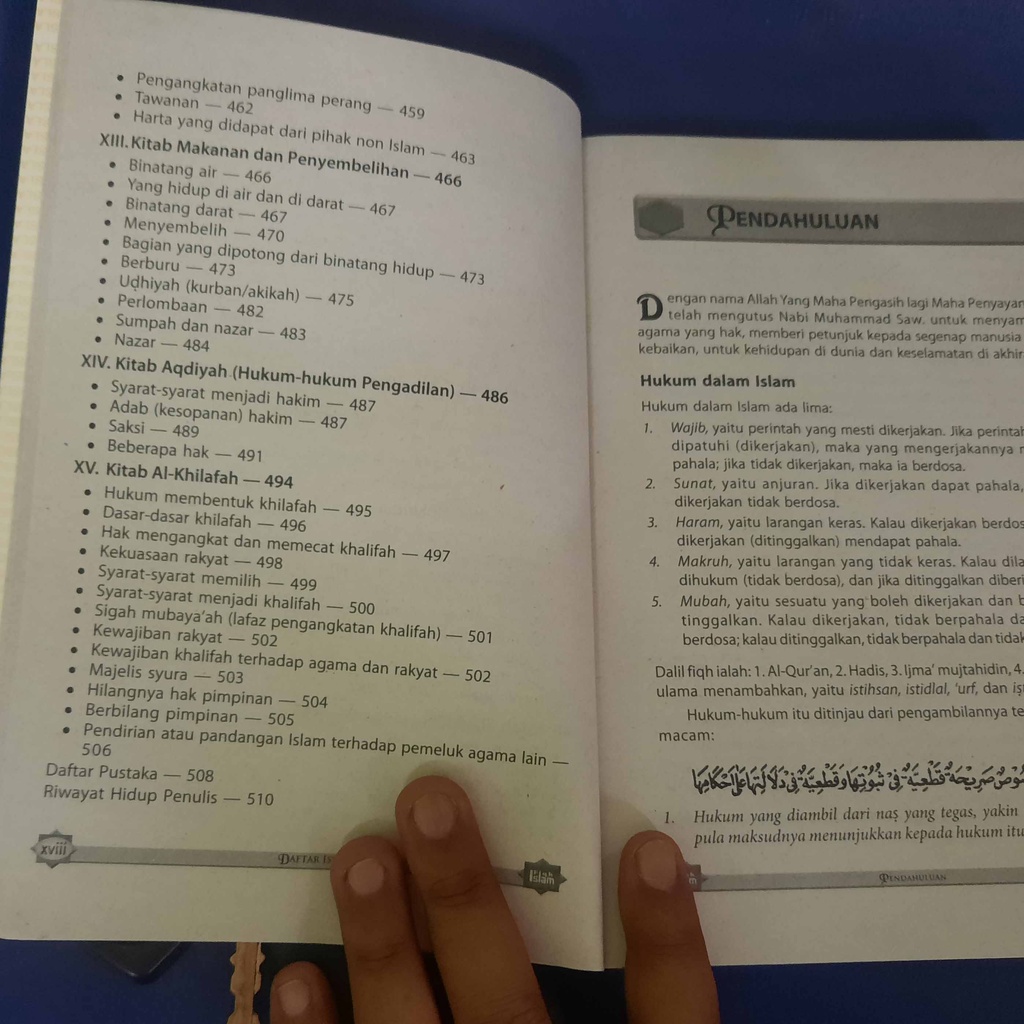 • Pengangkatan panglima perang — 459
• Tawanan — 462
• Harta yang didapat dari pihak non Islam — 463
XIII. Kitab Makanan dan Penyembelihan — 466
• Binatang air — 466
• Yang hidup di air dan di darat — 467
• Binatang darat — 467
• Menyembelih — 470
• Bagian yang dipotong dari binatang hidup — 473
• Berburu — 473
• Udhiyah (kurban/akikah) — 475
• Perlombaan — 482
• Sumpah dan nazar — 483
• Nazar — 484
XIV. Kitab Aqdiyah (Hukum-hukum Pengadilan) — 486
• Syarat-syarat menjadi hakim — 487
• Adab (kesopanan) hakim — 487
• Saksi — 489
• Beberapa hak — 491
XV. Kitab Al-Khilafah — 494
• Hukum membentuk khilafah — 495
• Dasar-dasar khilafah — 496
• Hak mengangkat dan memecat khalifah — 497
• Kekuasaan rakyat — 498
• Syarat-syarat memilih — 499
• Syarat-syarat menjadi khalifah — 500
• Sigah mubaya'ah (lafaz pengangkatan khalifah) — 501
• Kewajiban rakyat — 502
• Kewajiban khalifah terhadap agama dan rakyat — 502
• Majelis syura — 503
• Hilangnya hak pimpinan — 504
• Berbilang pimpinan — 505
• Pendirian atau pandangan Islam terhadap pemeluk agama lain —
506
Daftar Pustaka — 508
Riwayat Hidup Penulis — 510
xviii
DAFTAR
Islam
PENDAHULUAN
Dengan nama Allah Yang Maha Pengasih lagi Maha
telah mengutus Nabi Muhammad Saw. untuk
agama yang hak, memberi petunjuk kepada segenap manusia
kebaikan, untuk kehidupan di dunia dan keselamatan di
Hukum dalam Islam
Hukum dalam Islam ada lima:
1. Wajib, yaitu perintah yang mesti dikerjakan. Jika
dipatuhi (dikerjakan), maka yang mengerjakannya
pahala; jika tidak dikerjakan, maka ia berdosa.
2. Sunat, yaitu anjuran. Jika dikerjakan dapat pahala,
dikerjakan tidak berdosa.
3. Haram, yaitu larangan keras. Kalau dikerjakan
dikerjakan (ditinggalkan) mendapat pahala.
4. Makruh, yaitu larangan yang tidak keras. Kalau
dihukum (tidak berdosa), dan jika ditinggalkan
5. Mubah, yaitu sesuatu yang boleh dikerjakan dan
tinggalkan. Kalau dikerjakan, tidak berpahala
berdosa; kalau ditinggalkan, tidak berpahala dan
Dalil fiqh ialah: 1. Al-Qur'an, 2. Hadis, 3. Ijma' mujtahidin, 4.
ulama menambahkan, yaitu istihsan, istidlal, 'urf, dan
Hukum-hukum itu ditinjau dari pengambilannya
macam:
صَرِيْحَةٌ قَطْعِيَّةٌ فِيْ ثُبُوْتِهَا وَقَطْعِيَّةٌ فِيْ دَلَالَتِهَا عَلَى أَحْكَامِهَا
1. Hukum yang diambil dari naṣ yang tegas, yakin
pula maksudnya menunjukkan kepada hukum
PENDAHULUAN